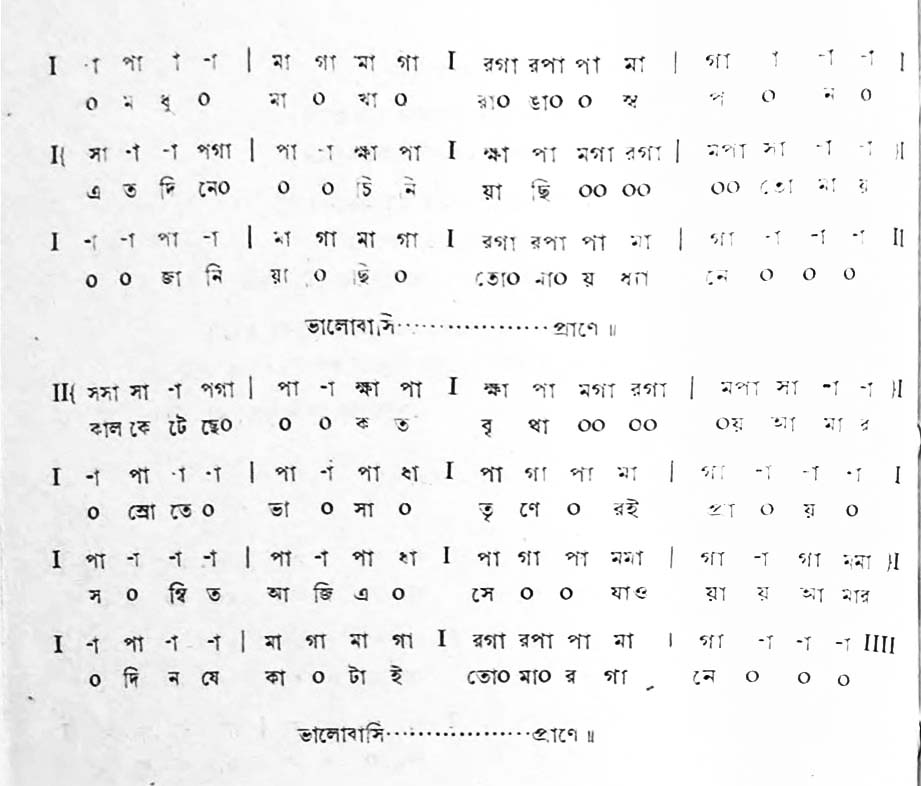 I -া পা -া -া | মা গা মা গা I রগা রপা পা মা | গা -া -া -া I
০ ম ধু ০ মা ০ খা ০ রা০ ঙা০ ০ স্ব প ০ ন ০
I{ সা -া -া পগা | পা -া ক্ষা পা I ক্ষা পা মগা রগা | মপা সা -া -া }I
এ ত দি নে০ ০ ০ চি নে য়া ছি ০০ ০০ ০০ তো মা য়
I -া -া পা -া | মা গা মা গা I রগা রপা পা মা | গা -া -া -া II
০ ০ জা নি য়া ০ ছি ০ তো০ মা০ য় ধ্যা নে ০ ০ ০
ভালোবাসি··················প্রাণে ॥
II{ সসা সা -া পগা | পা -া ক্ষা পা I ক্ষা পা মগা রগা | মপা সা -া -া }I
কাল কে টে ছে০ ০ ০ ক ত বৃ থা ০০ ০০ ০য় আ মা র
I -া পা -া -া | পা -া পা ধা I পা গা পা মা | গা -া -া -া I
০ স্রো তে ০ ভা ০ সা ০ তৃ ণে ০ রই প্রা ০ য় ০
I পা -া -া -া | পা -া পা ধা I পা গা পা মমা | গা -া গা মমা }I
স ০ ম্বি ত আ জি এ ০ সে ০ ০ যাও য়া য় আ মার
I -া পা -া -া | মা গা মা গা I রগা রপা পা মা | গা -া -া -া IIII
০ দি ন যে কা ০ টা ই তো০ মা০ র গা নে ০ ০ ০
ভালোবাসি··················প্রাণে ॥